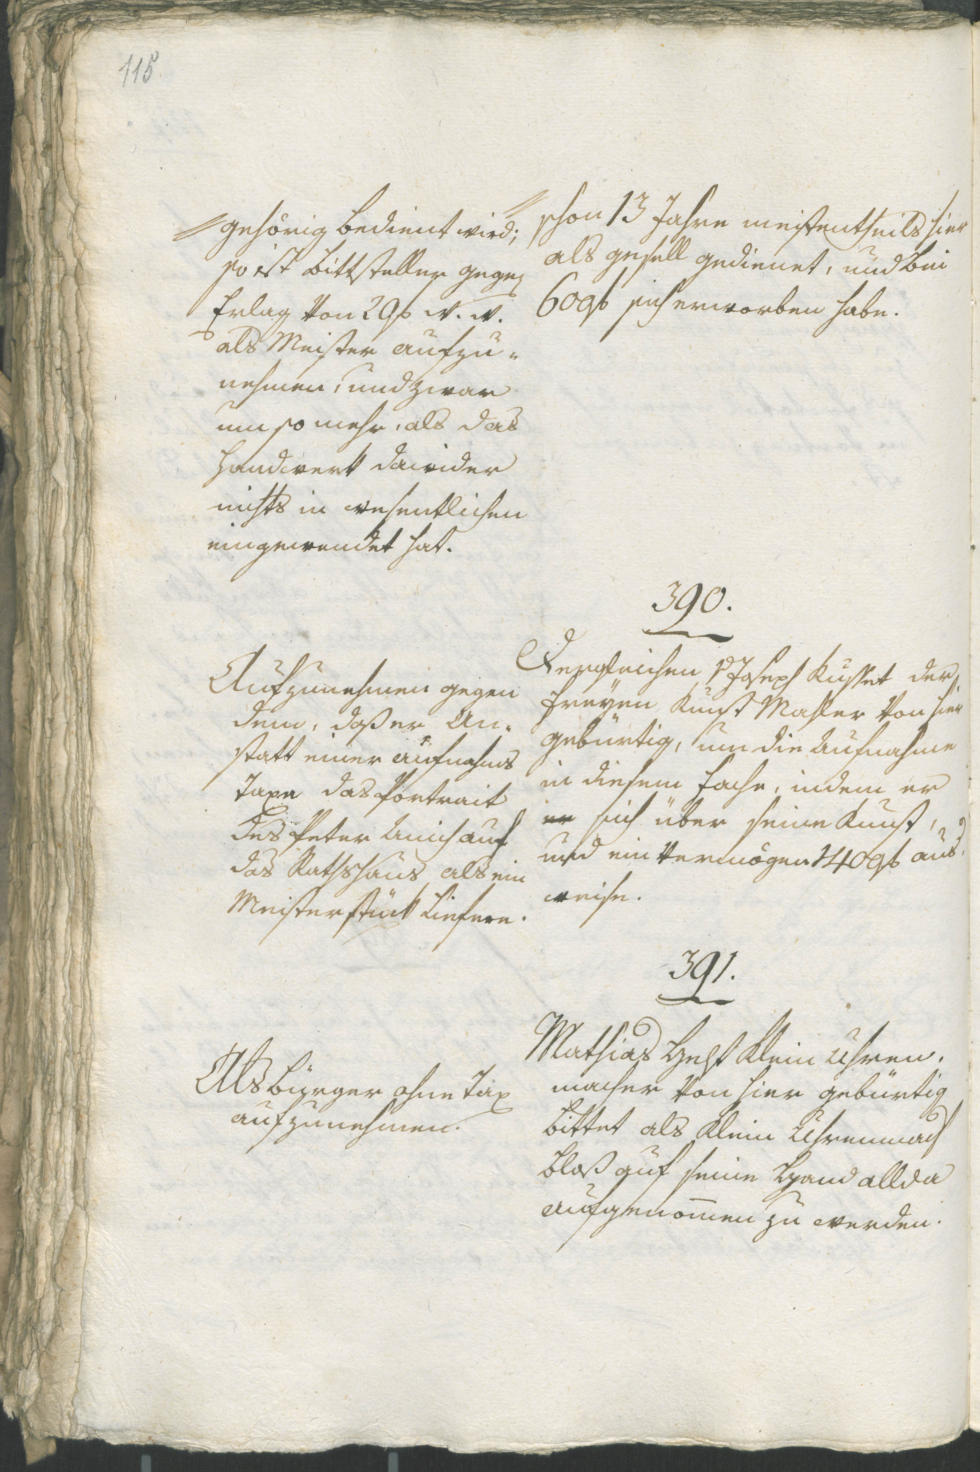 115
gehörig bedient wird;
so ist Bittsteller gegen
Erlag von 20 f W. W.
als Meister aufzu-
nehmen, und zwar
um so mehr, als das
Handwerk dawider
nichts in wesentlichen
eingewendet hat.
schon 13 Jahre meistentheils hier
als gesell gedienet, und bei
600 f sich erworben habe.
390.
Aufzunehmen gegen
dem, daß er An-
statt einer aufnahms
Taxe das Portrait
des Peter Anich auf
das Rathshaus als ein
Meisterstück liefere.
Dergleichen Joseph der
freyen Kunst Mahler von hier
gebürtig, um die Aufnahme
in diesem Fache, indem er
sich über seine Kunst,
und ein Vermögen 1400 f aus-
weise.
391.
Als Bürger ohne Tax
aufzunehmen.
Mathias Klein Uhren-
macher von hier gebürtig
bittet als Klein Uhrenmach
bloß auf seine Hand allda
aufgenommen zu werden.